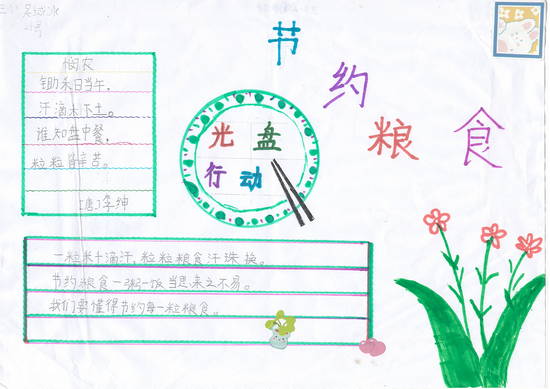 21号
节约粮食
悯农
锄禾日当午,
汗滴禾下土。
谁知盘中餐,
粒粒皆辛苦。
[唐]李绅
光盘
行动
一粒米十滴汗,粒粒粮食汗珠换。
节约粮食一粥一饭当思来之不易。
我们要懂得节约每一粒粮食。